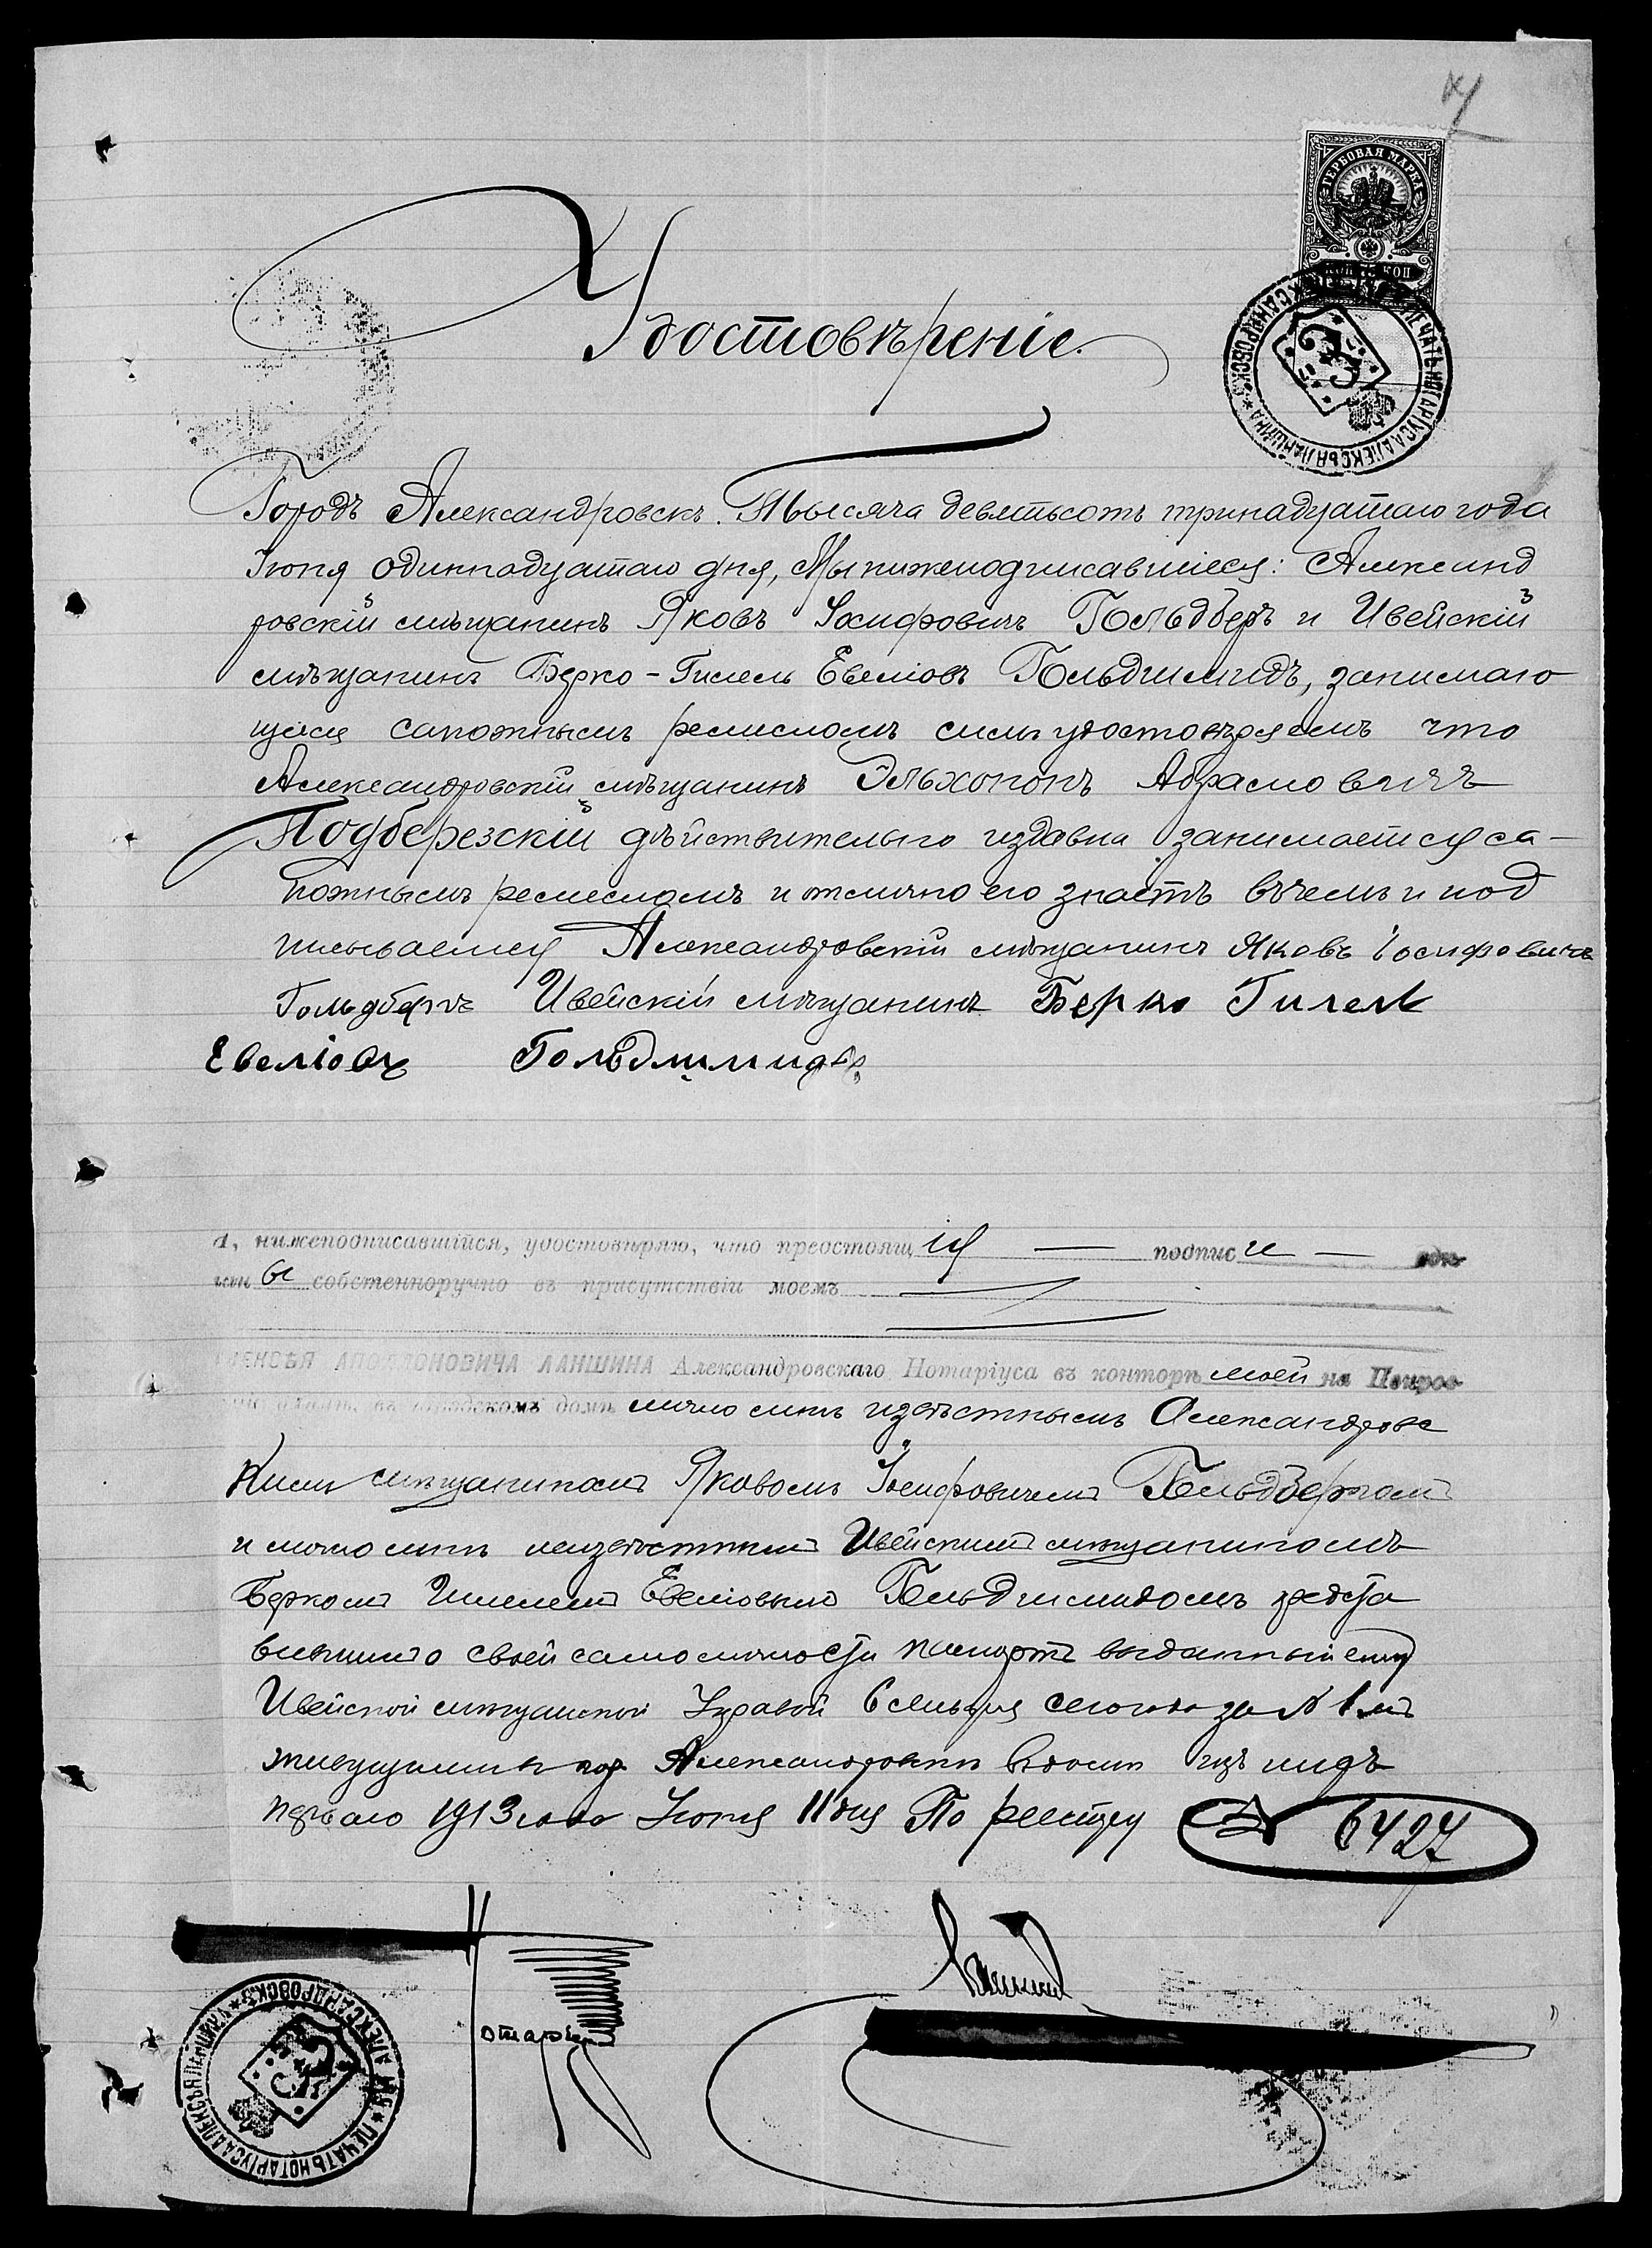 ГЕРБОВАЯ МАРКА
Удостовѣреніе.
ПЕЧАТЬ НОТАРІУСА АЛЕКСѢЯ ЛАНШИНА * АЛЕКСАНДРОВСКЪ *
Городъ Александровскъ. Тысяча девятьсотъ тринадцатаго года
Іюня одиннадцатаго дня, Мы нижеподписавшіеся: Александ
ровскій мѣщанинъ Яковъ Іосифовичъ Гольдбергъ и Ивейскій
мѣщанинъ Берко-Гилель Евеліовъ Гольдшмидъ, занимаю
щіеся сапожнымъ ремисломъ симъ удостовѣряемъ что
Александровскій мѣщанинъ Эльхононъ Абрамовичъ
Подберезскій дѣйствительно издавна занимается са-
пожнымъ ремесломъ и отлично его знаетъ въ чемъ и под
писываемся Александровскій мѣщанинъ Яковъ Іосифовичъ
Гольдбергъ Ивейскій мѣщанинъ Берко Гилел
Евеліовъ Гольдшмидъ
Я, нижеподписавшійся, удостовѣряю, что предстоящія — подписи —
ны собственноручно въ присутствіи моемъ
АЛЕКСѢЯ АПОЛЛОНОВИЧА ЛАНШИНА Александровскаго Нотаріуса въ конторѣ моей на Покров
въ городскомъ домѣ лично мнѣ извѣстнымъ Александровс
кимъ мѣщаниномъ Яковомъ Іосифовичемъ Гольдбергомъ
и лично мнѣ неизвѣстнымъ Ивейскимъ мѣщаниномъ
Беркомъ Гилелемъ Евеліовымъ Гольдшмидомъ предста
вившимъ о своей самоличности паспортъ выданный ему
Ивейской мѣщанской Управой 6 сего года за № 1 мъ
живущими въ гор. Александровскѣ
перваго 1913 года Іюня 11 дня По реестру № 6427
Нотаріусъ Ланшинъ
ПЕЧАТЬ НОТАРІУСА АЛЕКСѢЯ ЛАНШИНА * АЛЕКСАНДРОВСКЪ *